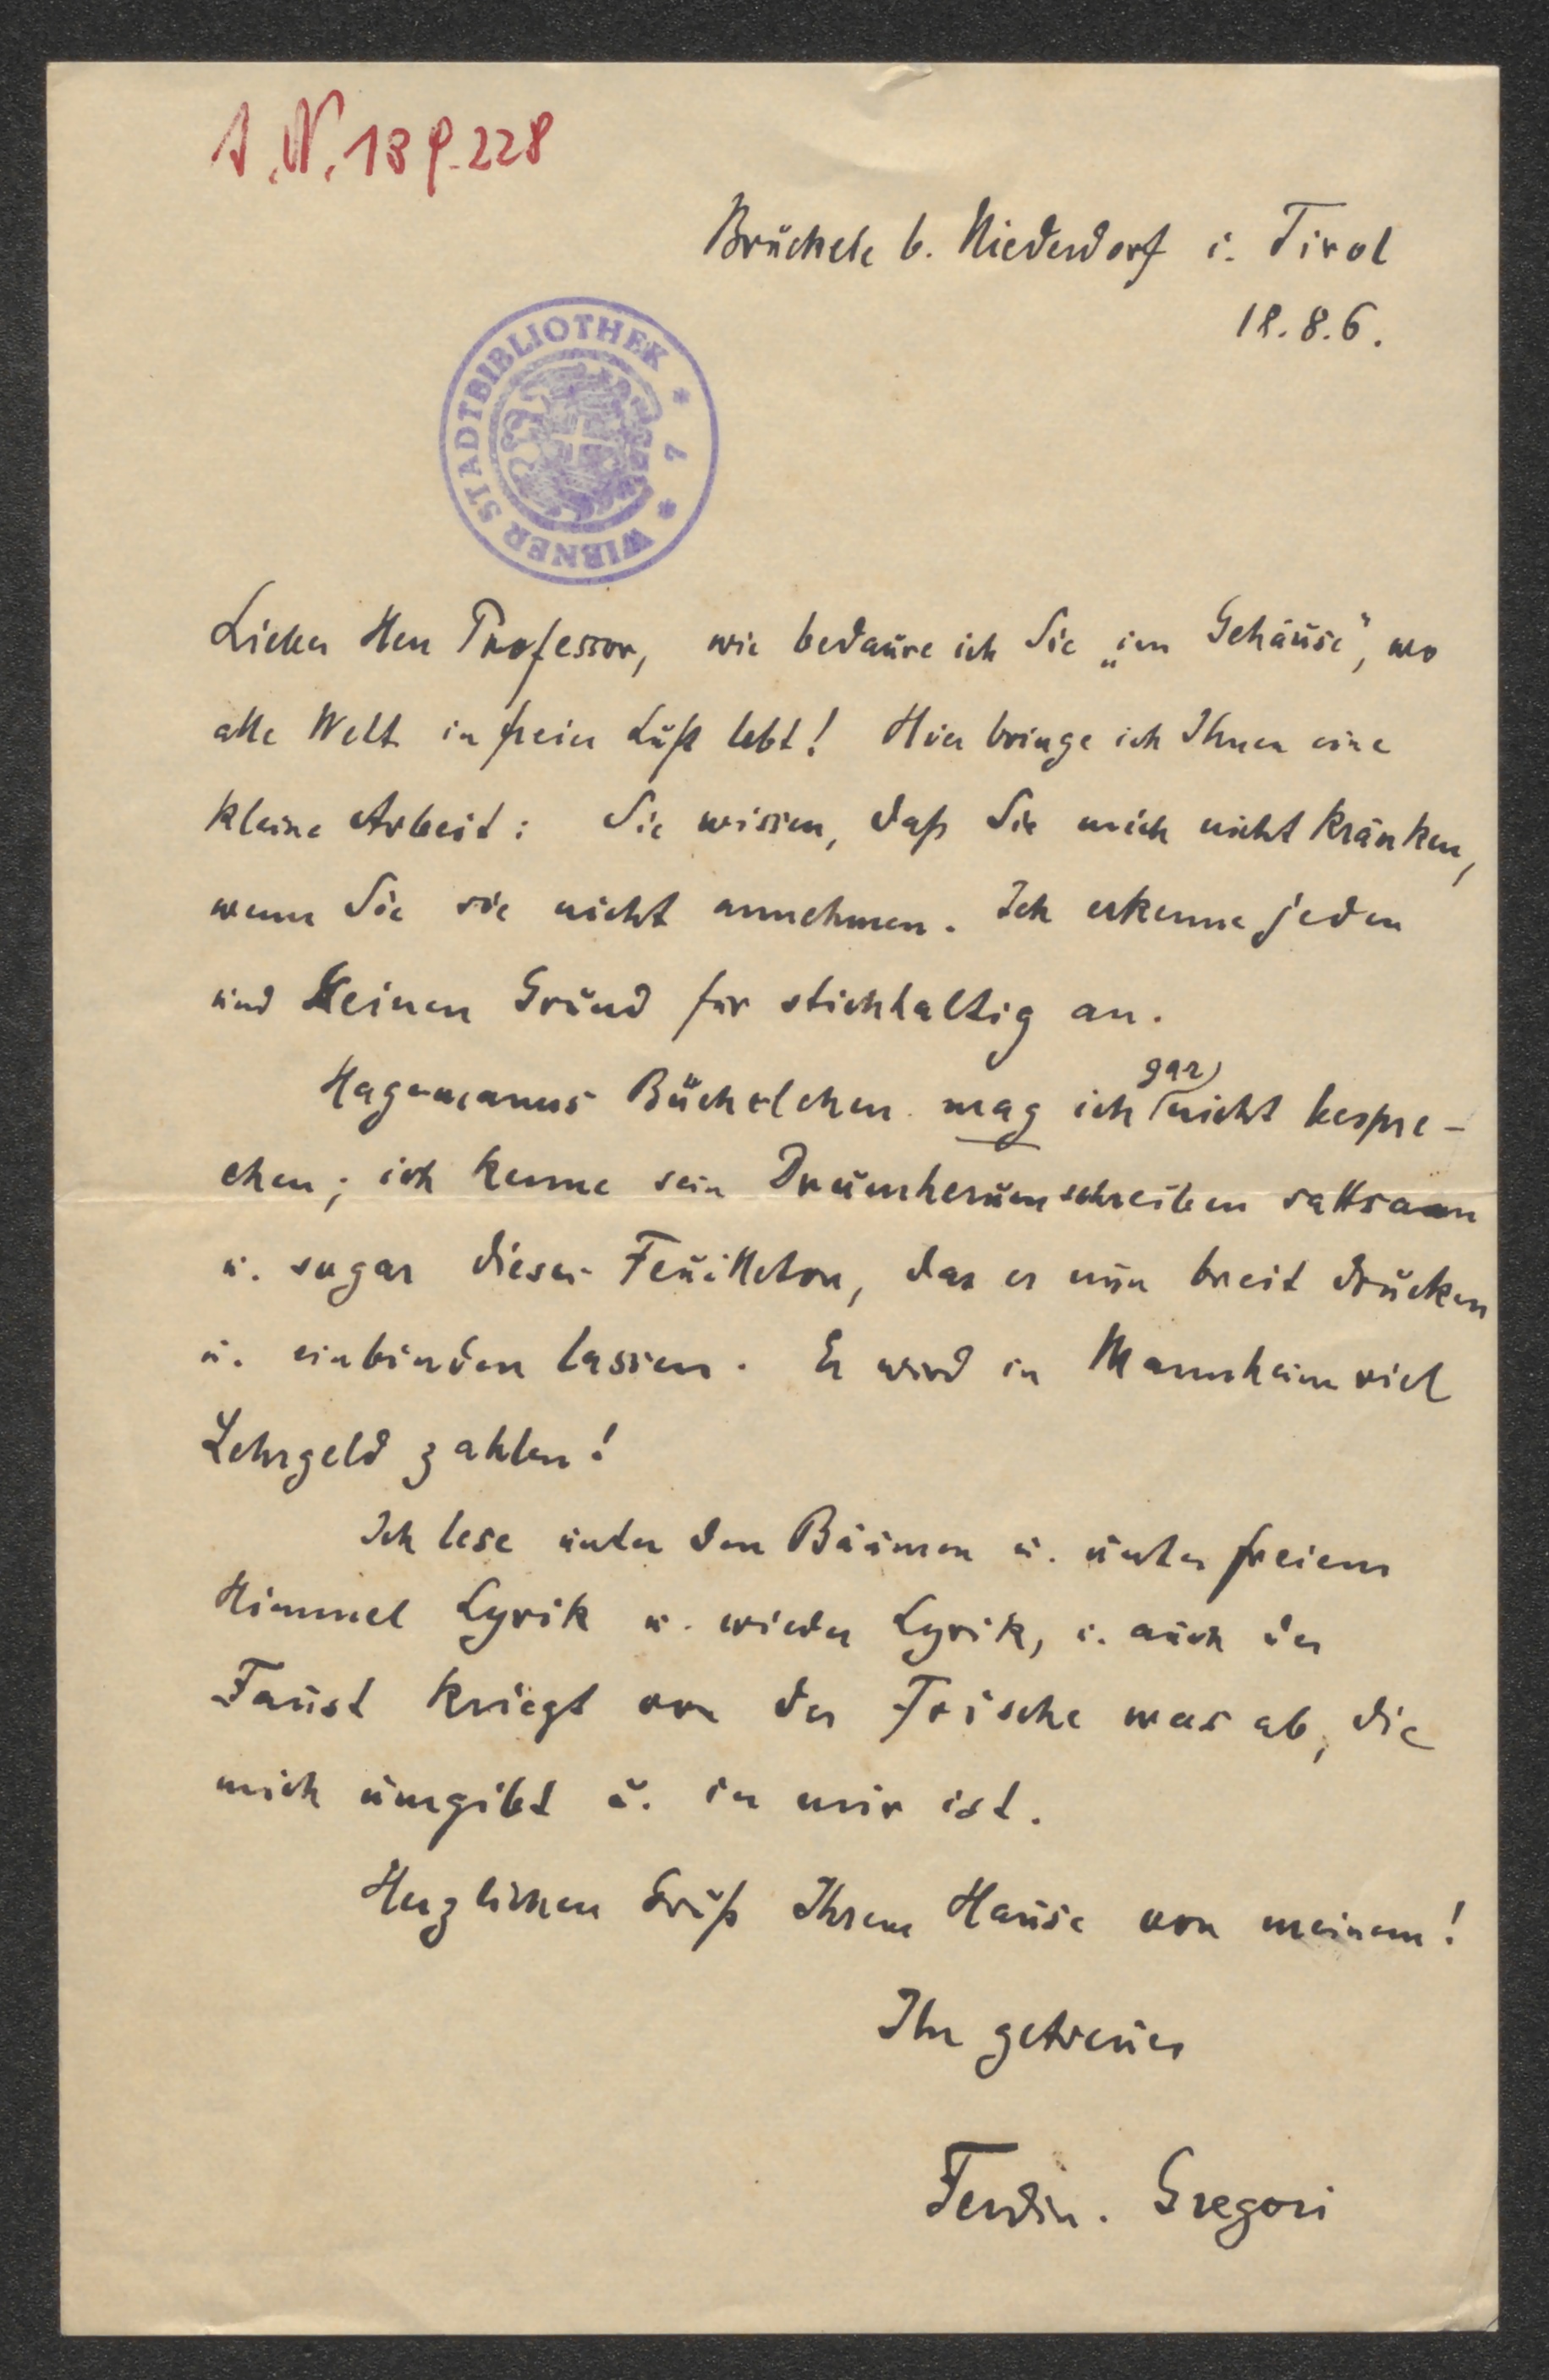 J.N. 139.228
Brückele b. Niederdorf i. Tirol
18.8.6.
WIENER STADTBIBLIOTHEK * 7 *
Lieber Herr Professor, wie bedaure ich Sie „im Gehäuse“, wo
alle Welt in freier Luft lebt! Hier bringe ich Ihnen eine
kleine Arbeit: Sie wissen, daß Sie mich nicht kränken,
wenn Sie sie nicht annehmen. Ich erkenne jeden
und keinen Grund für stichhaltig an.
Hagemanns Büchelchen mag ich gar nicht bespre-
chen; ich kenne sein Drumherumschreiben sattsam
u. sogar dieses Feuilleton, das er nun breit drucken
u. einbinden lassen. Er wird in Mannheim viel
Lehrgeld zahlen!
Ich lese unter den Bäumen u. unter freiem
Himmel Lyrik u. wieder Lyrik, u. auch der
Faust kriegt von der Frische was ab, die
mich umgibt u. in mir ist.
Herzlichen Gruß Ihrem Hause von meinem!
Ihr getreuer
Ferdin. Gregori